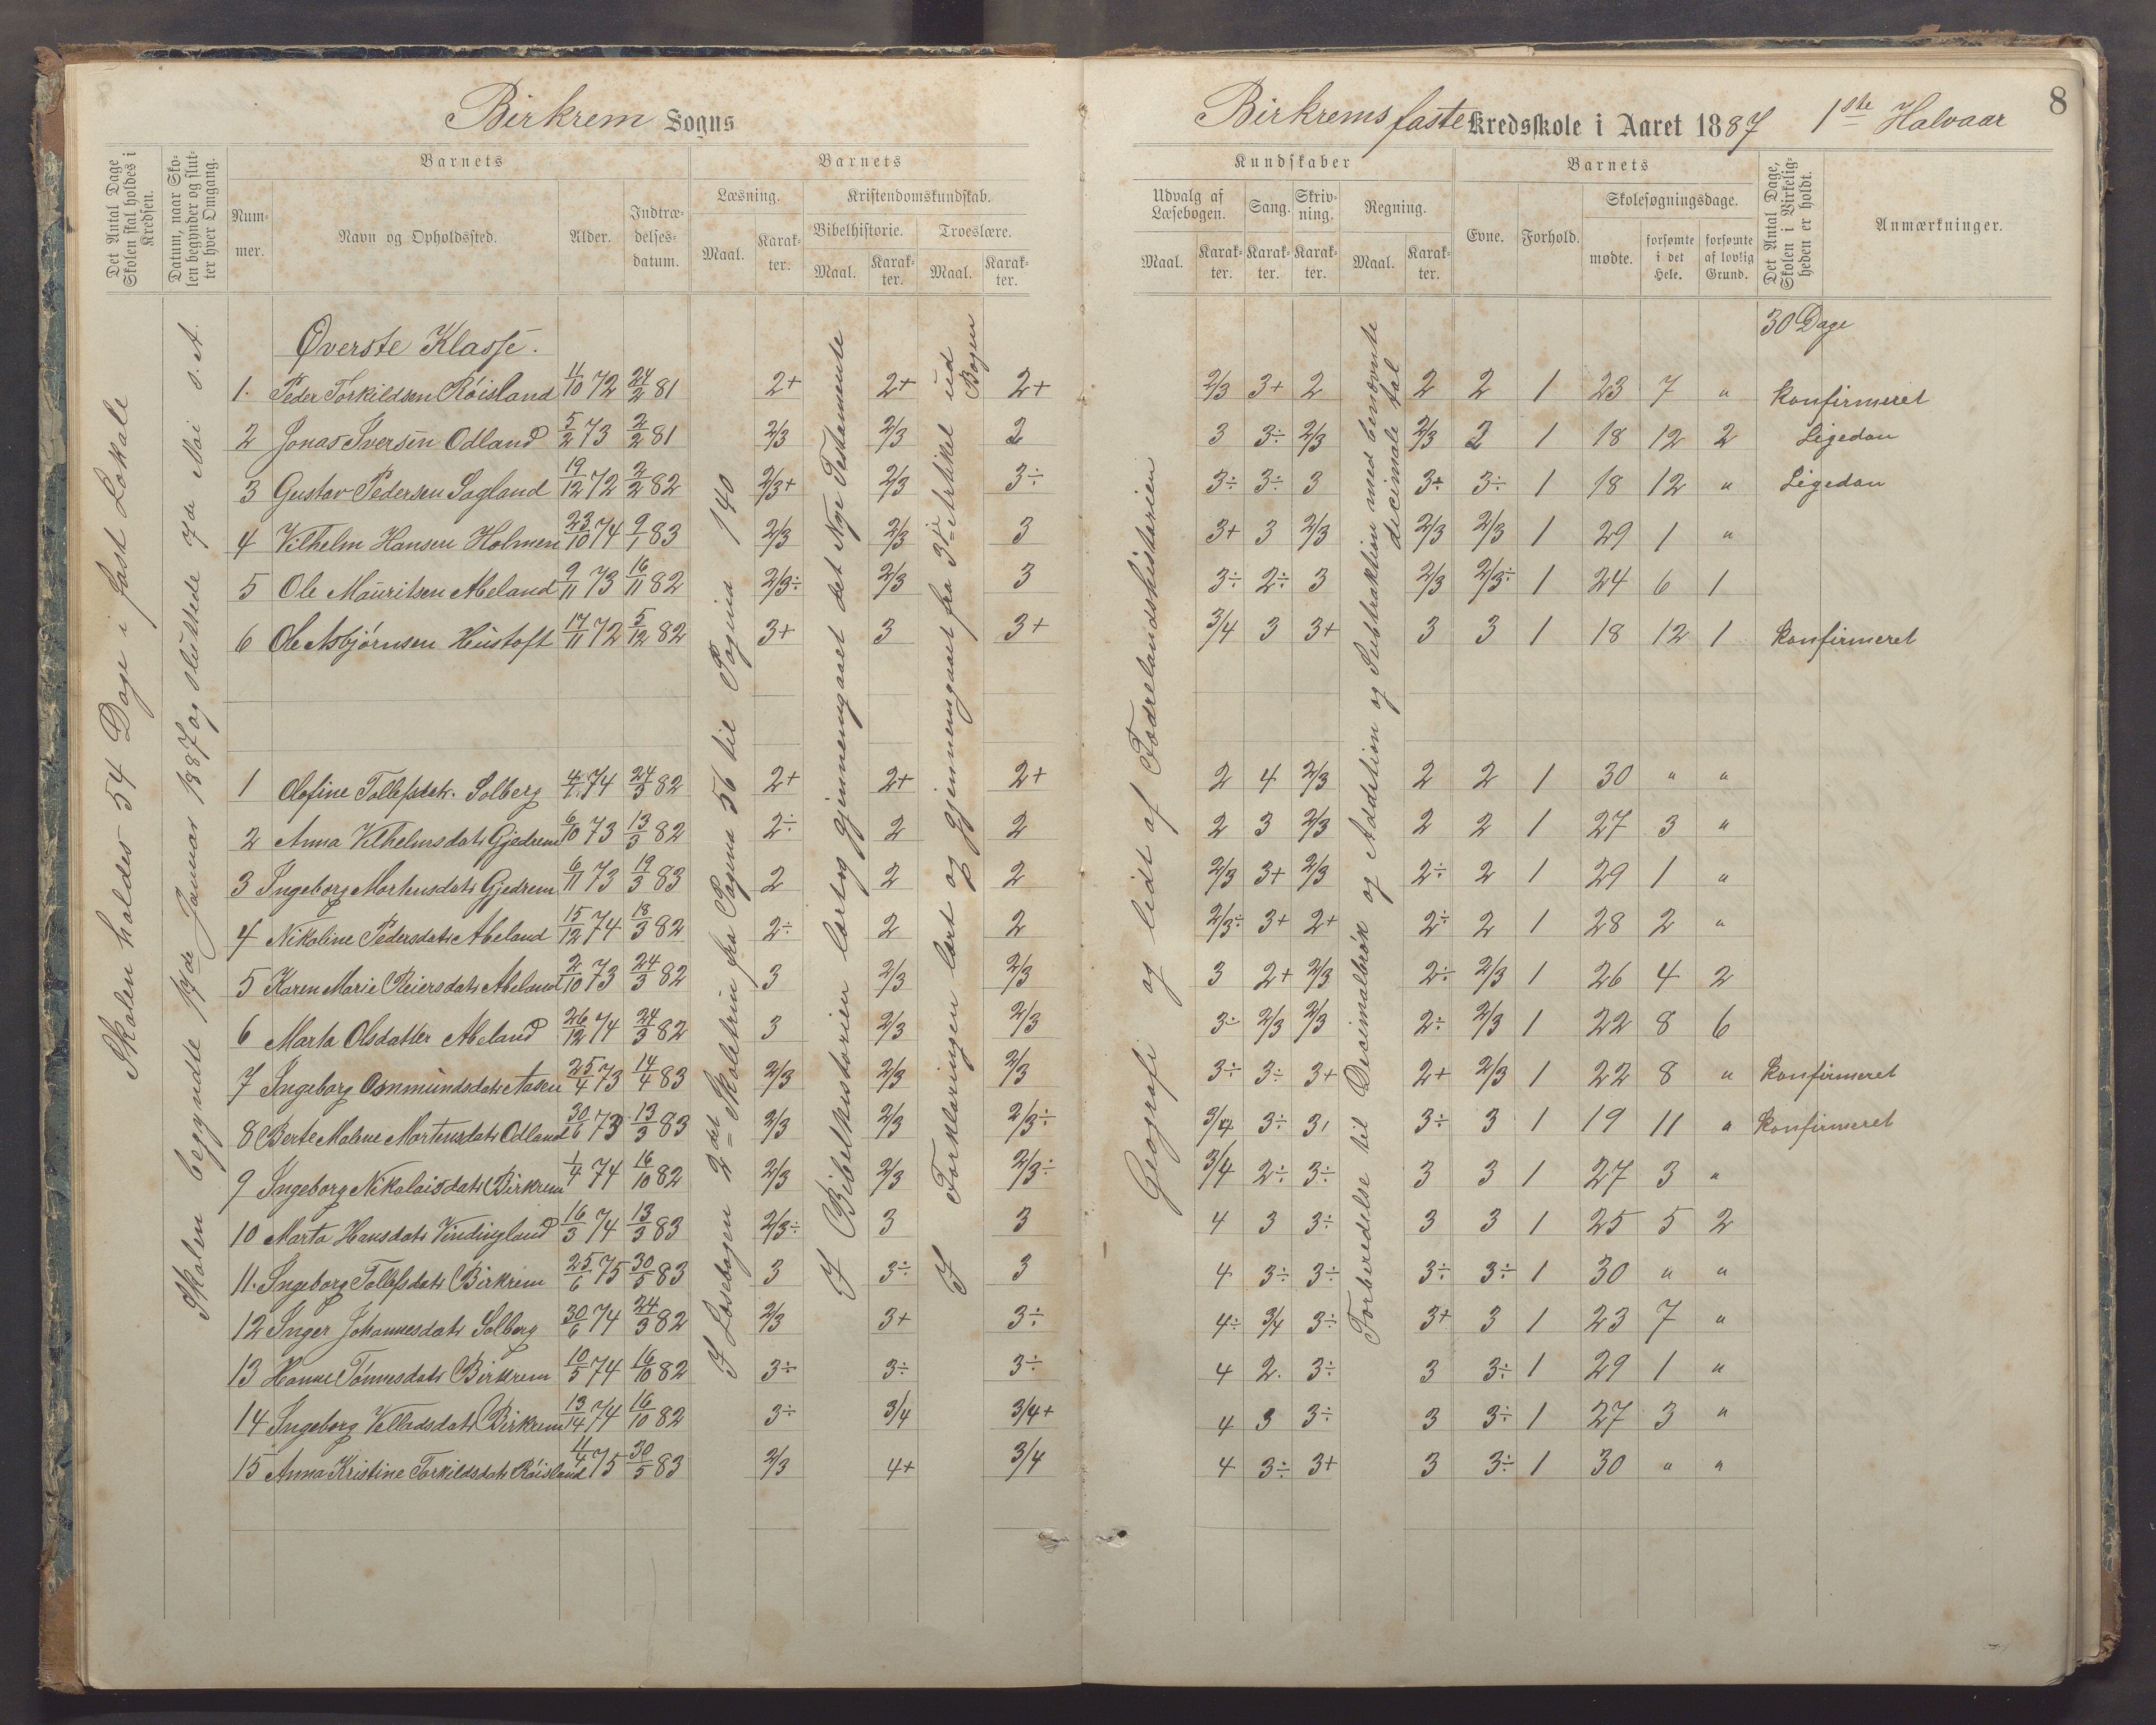 Birkrem Sogns
Birkrems faste Kredsskole i Aaret 1887 1ste Halvaar
8
Det Antal Dage Skolen skal holdes i Kredsen.
Datum, naar Skolen begynder og slutter hver Omgang.
Barnets
Nummer.
Navn og Opholdssted.
Alder.
Indtrædelsesdatum.
Barnets
Læsning.
Maal.
Karakter.
Kristendomskundskab.
Bibelhistorie.
Maal.
Karakter.
Troeslære.
Maal.
Karakter.
Kundskaber
Udvalg af Læsebogen.
Maal.
Karakter.
Sang.
Karakter.
Skrivning.
Karakter.
Regning.
Maal.
Karakter.
Barnets
Evne.
Forhold.
Skolesøgningsdage.
mødte.
forsømte i det Hele.
forsømte af lovlig Grund.
Det Antal Dage, Skolen i Virkeligheden er holdt.
Anmærkninger.
Skolen holdes 54 Dage i fast Lokale
Skolen begyndte 17de Januar 1887 og sluttede 7de Mai s. A.
I Læsebogen 2det Skoletrin fra Pagina 56 til Pagina 140
I Bibelhistorien lært og gjennemgaaet det Nye Testamente
I Forklaringen lært og gjennemgaaet fra 3die Artikel ud Bogen
Geografi og lidt af Fædrelandshistorien
Forberedelse til Decimalbrøk og Addition og Subtraktion med benævnte decimale tal
30 Dage
Øverste Klasse.
1. Peder Torkildsen Røisland 11/10 72 24/2 81 2+ 2+ 2+ 2/3 3+ 2 2 2 1 23 7 " Konfirmeret
2 Jonas Iversen Odland 5/2 73 2/2 81 2/3 2/3 2 3 3÷ 2/3 2/3 2 1 18 12 2 Ligedan
3 Gustav Pedersen Sagland 19/12 72 2/2 82 2/3+ 2/3 3÷ 3÷ 3÷ 3 3÷ 3÷ 1 18 12 " Ligedan
4 Vilhelm Hansen Holmen 23/10 74 9/1 83 2/3 2/3 3 3+ 3 2/3 2/3 2/3 1 29 1 "
5 Ole Mauritsen Abeland 9/11 73 16/11 82 2/3÷ 2/3 3 3÷ 2÷ 3 2/3 2/3÷ 1 24 6 1
6 Ole Asbjørnsen Hustoft 17/11 72 5/12 82 3+ 3 3+ 3/4 3 3+ 3 3 1 18 12 1 Konfirmeret
1 Olofine Tollefsdatr. Solberg 4/1 74 24/3 82 2+ 2+ 2+ 2 4 2/3 2 2 1 30 " "
2 Anna Vilhelmsdatr Gjedrem 6/10 73 13/3 82 2÷ 2 2 2 3 2/3 2 2 1 27 3 "
3 Ingeborg Mortensdatr Gjedrem 6/11 73 19/3 83 2 2 2 2/3 3+ 2/3 2÷ 2 1 29 1 "
4 Nikoline Pedersdatr Abeland 15/12 74 18/3 82 2÷ 2 2 2/3÷ 3+ 2+ 2÷ 2 1 28 2 "
5 Karen Marie Reiersdatr Abeland 2/10 73 24/3 82 3 2/3 2/3 3 2+ 2/3 2÷ 2/3 1 26 4 2
6 Marta Olsdatter Abeland 26/12 74 24/3 82 3 2/3 2/3 3÷ 2/3 2/3 2÷ 2/3 1 22 8 6
7 Ingeborg Osmundsdatr Aasen 25/4 73 14/4 83 2/3 2/3 2/3 3÷ 3÷ 3+ 2+ 2/3 1 22 8 " Konfirmeret
8 Berte Malene Mortensdatr Odland 30/6 73 13/3 83 2/3 2/3 2/3÷ 3/4 3÷ 3, 3÷ 3 1 19 11 " Konfirmeret
9 Ingeborg Nikolaisdatr Birkrem 1/4 74 16/10 82 2/3 2/3 2/3÷ 3/4 2÷ 3÷ 3 3 1 27 3 "
10 Marta Hansdatr Vindingland 16/3 74 13/3 83 2/3÷ 3 3 4 3 3÷ 3 3 1 25 5 2
11. Ingeborg Tollefsdatr Birkrem 25/6 75 30/5 83 3 3÷ 3 4 3÷ 3÷ 3÷ 3÷ 1 30 " "
12 Inger Johannesdatr Solberg 30/6 74 24/3 82 2/3 3+ 3÷ 4÷ 3/4 3÷ 3+ 3 1 23 7 "
13 Hanne Tønnesdatr Birkrem 10/5 74 16/10 82 3÷ 3÷ 3÷ 4 2. 3÷ 3 3÷ 1 29 1 "
14 Ingeborg Velladsdatr Birkrem 13/14 74 16/10 82 3÷ 3/4 3/4+ 4 3 3÷ 3 3÷ 1 27 3 "
15 Anna Kristine Torkildsdatr Røisland 11/4 75 30/5 83 2/3 4+ 3/4 4 3÷ 3+ 3 3÷ 1 30 " "